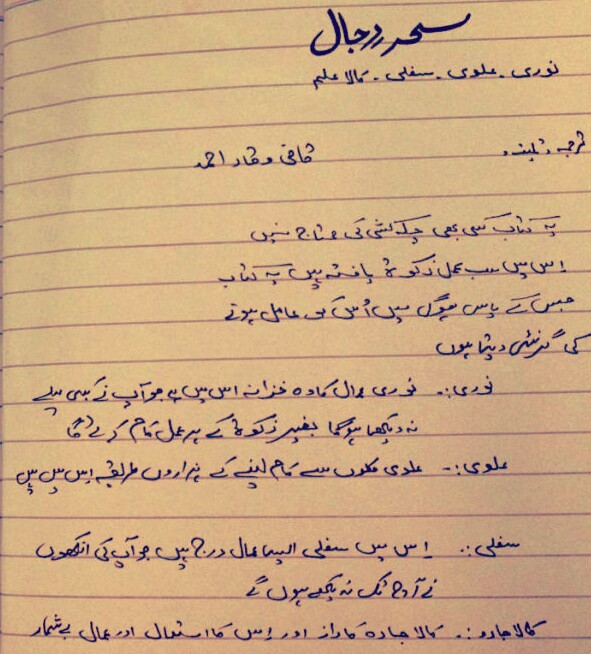 سحر دجال
نوری - علوی - سفلی - کالا علم
ترجمہ و قاضی وقار احمد
یہ کتاب کسی بھی چلہ کشی کی محتاج نہیں
اس میں سب عمل زکوۃ یافتہ ہیں یہ کتاب
جس کے پاس ہوگی میں اُس کو عامل ہونے
کی گرنٹی دیتا ہوں
نوری:۔ نوری عمال کا وہ خزانہ اس میں ہے جو آپ نے کبھی پہلے
نہ دیکھا ہوگا بغیر زکوۃ کے ہر عمل کام کرے گا
علوی:۔ علوی موکلوں سے کام لینے کے ہزاروں طریقہ اس میں ہیں
سفلی:۔ اس میں سفلی ایسا عمال درج ہیں جو آپ کی انکھوں
نے آج تک نہ دیکھے ہوں گے
کالا جادو:۔ کالا جادہ کا راز اور اس کا استعمال اور عمال بے شمار